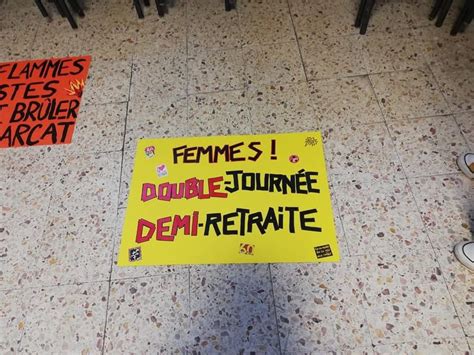 FLAMMES
STES
T BRÛLER
ARCAT
FEMMES !
DOUBLE-JOURNÉE
DEMI-RETRAITE